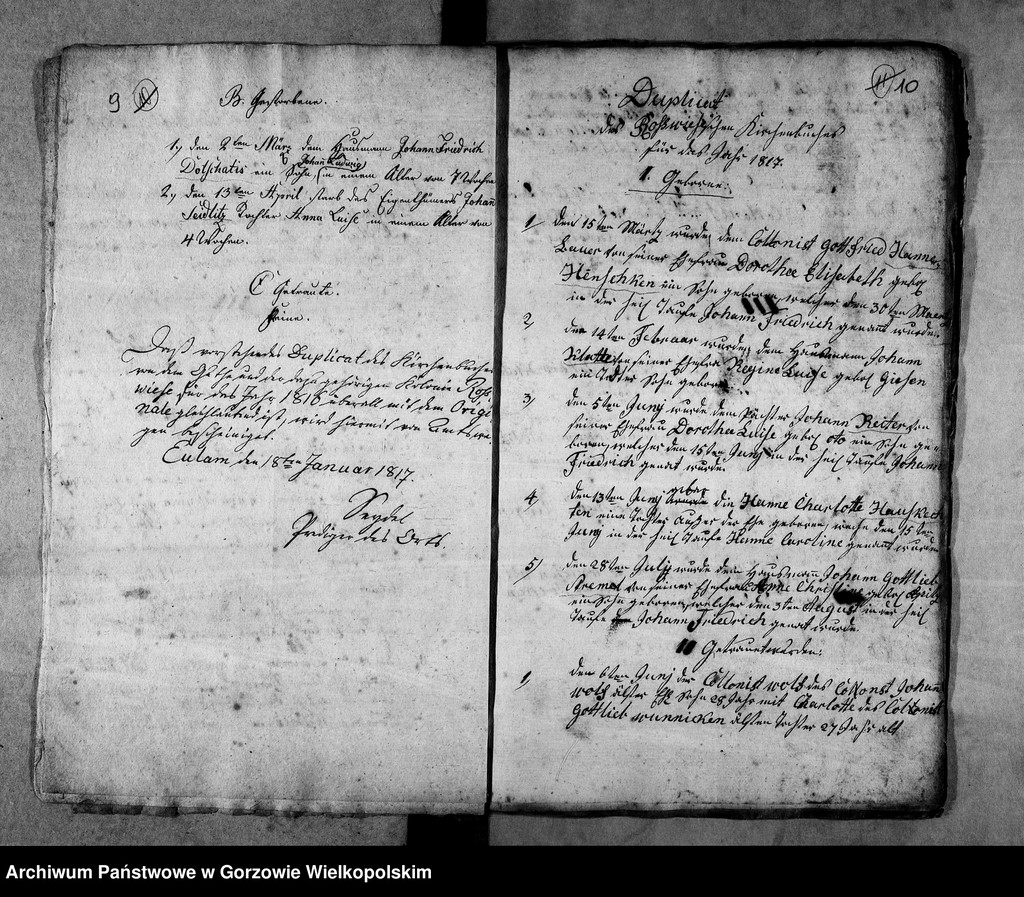 9 10
B. Gestorbene.
1, den 2ten März dem Hausmann Johann Friedrich
Johann Ludwig
Dolschatis ein Sohn, in einem Alter von 7 Wochen
2, den 13ten April starb des Eigenthümers Johann
Seidlitz Tochter Anna Luise in einem Alter von
4 Wochen.
C Getraute.
Keine.
Daß vorstehendes Duplicat des Kirchenbuches
von dem und der dazu gehörigen Kolonie Roß-
wiese für das Jahr 1816 überall mit dem Origi-
nale gleichlautend ist, wird hiermit von Amtswe-
gen bescheiniget.
Eulam den 18ten Januar 1817.
Seydel
Prediger des Orts.
11 10
Duplicat
des Roßwieschen Kirchenbuches
für das Jahr 1817.
I. Geborne:
1, den 15ten Märtz wurde, dem Collonist Gottfried Hanne
Bauer von seiner Ehefrau Dorothee Elisabeth geboh
Henschken ein Sohn geboren, welcher den 30ten
in der heil Taufe Johann Friedrich genannt wurde.
2, den 14ten Februar wurde, dem Hausmann Johann
von seiner Ehefrau Regine Luise geboh Giesen
ein Sohn geboren
3, den 5ten Junj wurde dem Pächter Johann Reiter von
seiner Ehefrau Dorothee Luise geboh Oto ein Sohn ge-
boren, welcher den 15ten Junj in der heil Taufe Johann
Friedrich genant wurde.
gebar
4, den 13ten Junj die Hanne Charlotte
ten eine Tochter außer der Ehe geboren, welche den 15ten
Junj in der heil Taufe Hanne Caroline genannt wurde
5) den 28ten Julij wurde dem Hausmann Johann Gottlieb
Kremet von seiner Ehefrau Anne Christine geboh
ein Sohn geboren, welcher den 3ten August in der heil
Taufe Johann Friedrich genant wurde.
II Getraut wurden:
1, den 6ten Junj der Collonist Wolf des Collonist Johann
Wolf ältster Sohn 28 Jahr mit Charlotte des Collonist
Gottlieb Wunnicken ältsten Tochter 27 Jahr alt
Archiwum Państwowe w Gorzowie Wielkopolskim